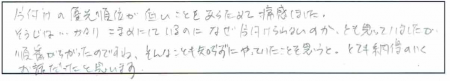 片付けの優先順位が低いことをあらためて痛感しました。
そうじは…かなりこまめにしているのになぜ片付けられないのか、とも思っていましたが
順番がちがったのですね。そんなことも知らずにやっていたことを思うと。とても納得のいく
お話だったと思います。